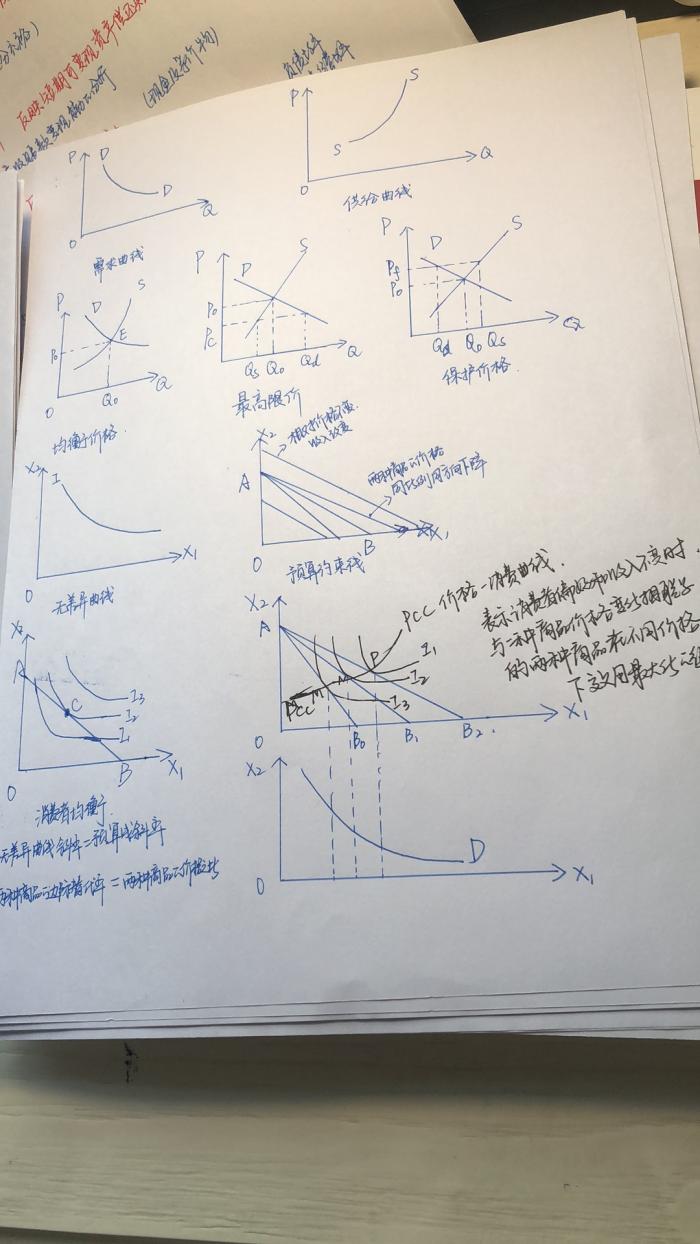 反映短期可变现资产偿还
P
D
D
O
Q
需求曲线
P
S
S
O
Q
供给曲线
P
D
S
P₀
E
O
Q₀
Q
均衡价格
P
D
S
P₀
Pc
O
Qs Q₀ Qd Q
最高限价
P
D
S
Pf
P₀
O
Qd Q₀ Qs Q
保护价格
X₂
I
O
X₁
无差异曲线
X₂
相对价格不变
收入改变
A
两种商品价格
同比例同方向下降
O
B
X₁
预算约束线
X₂
A
C
I₃
I₂
I₁
O
B
X₁
消费者均衡
无差异曲线斜率=预算线斜率
两种商品之边际替代率=两种商品之价格比
X₂
A
PCC 价格-消费曲线.
表示消费者偏好和收入不变时
与一种商品价格变化相联系
的两种商品在不同价格
下效用最大化
P
I₁
I₂
I₃
M
PCC
O
B₀
B₁
B₂
X₁
X₂
D
O
X₁